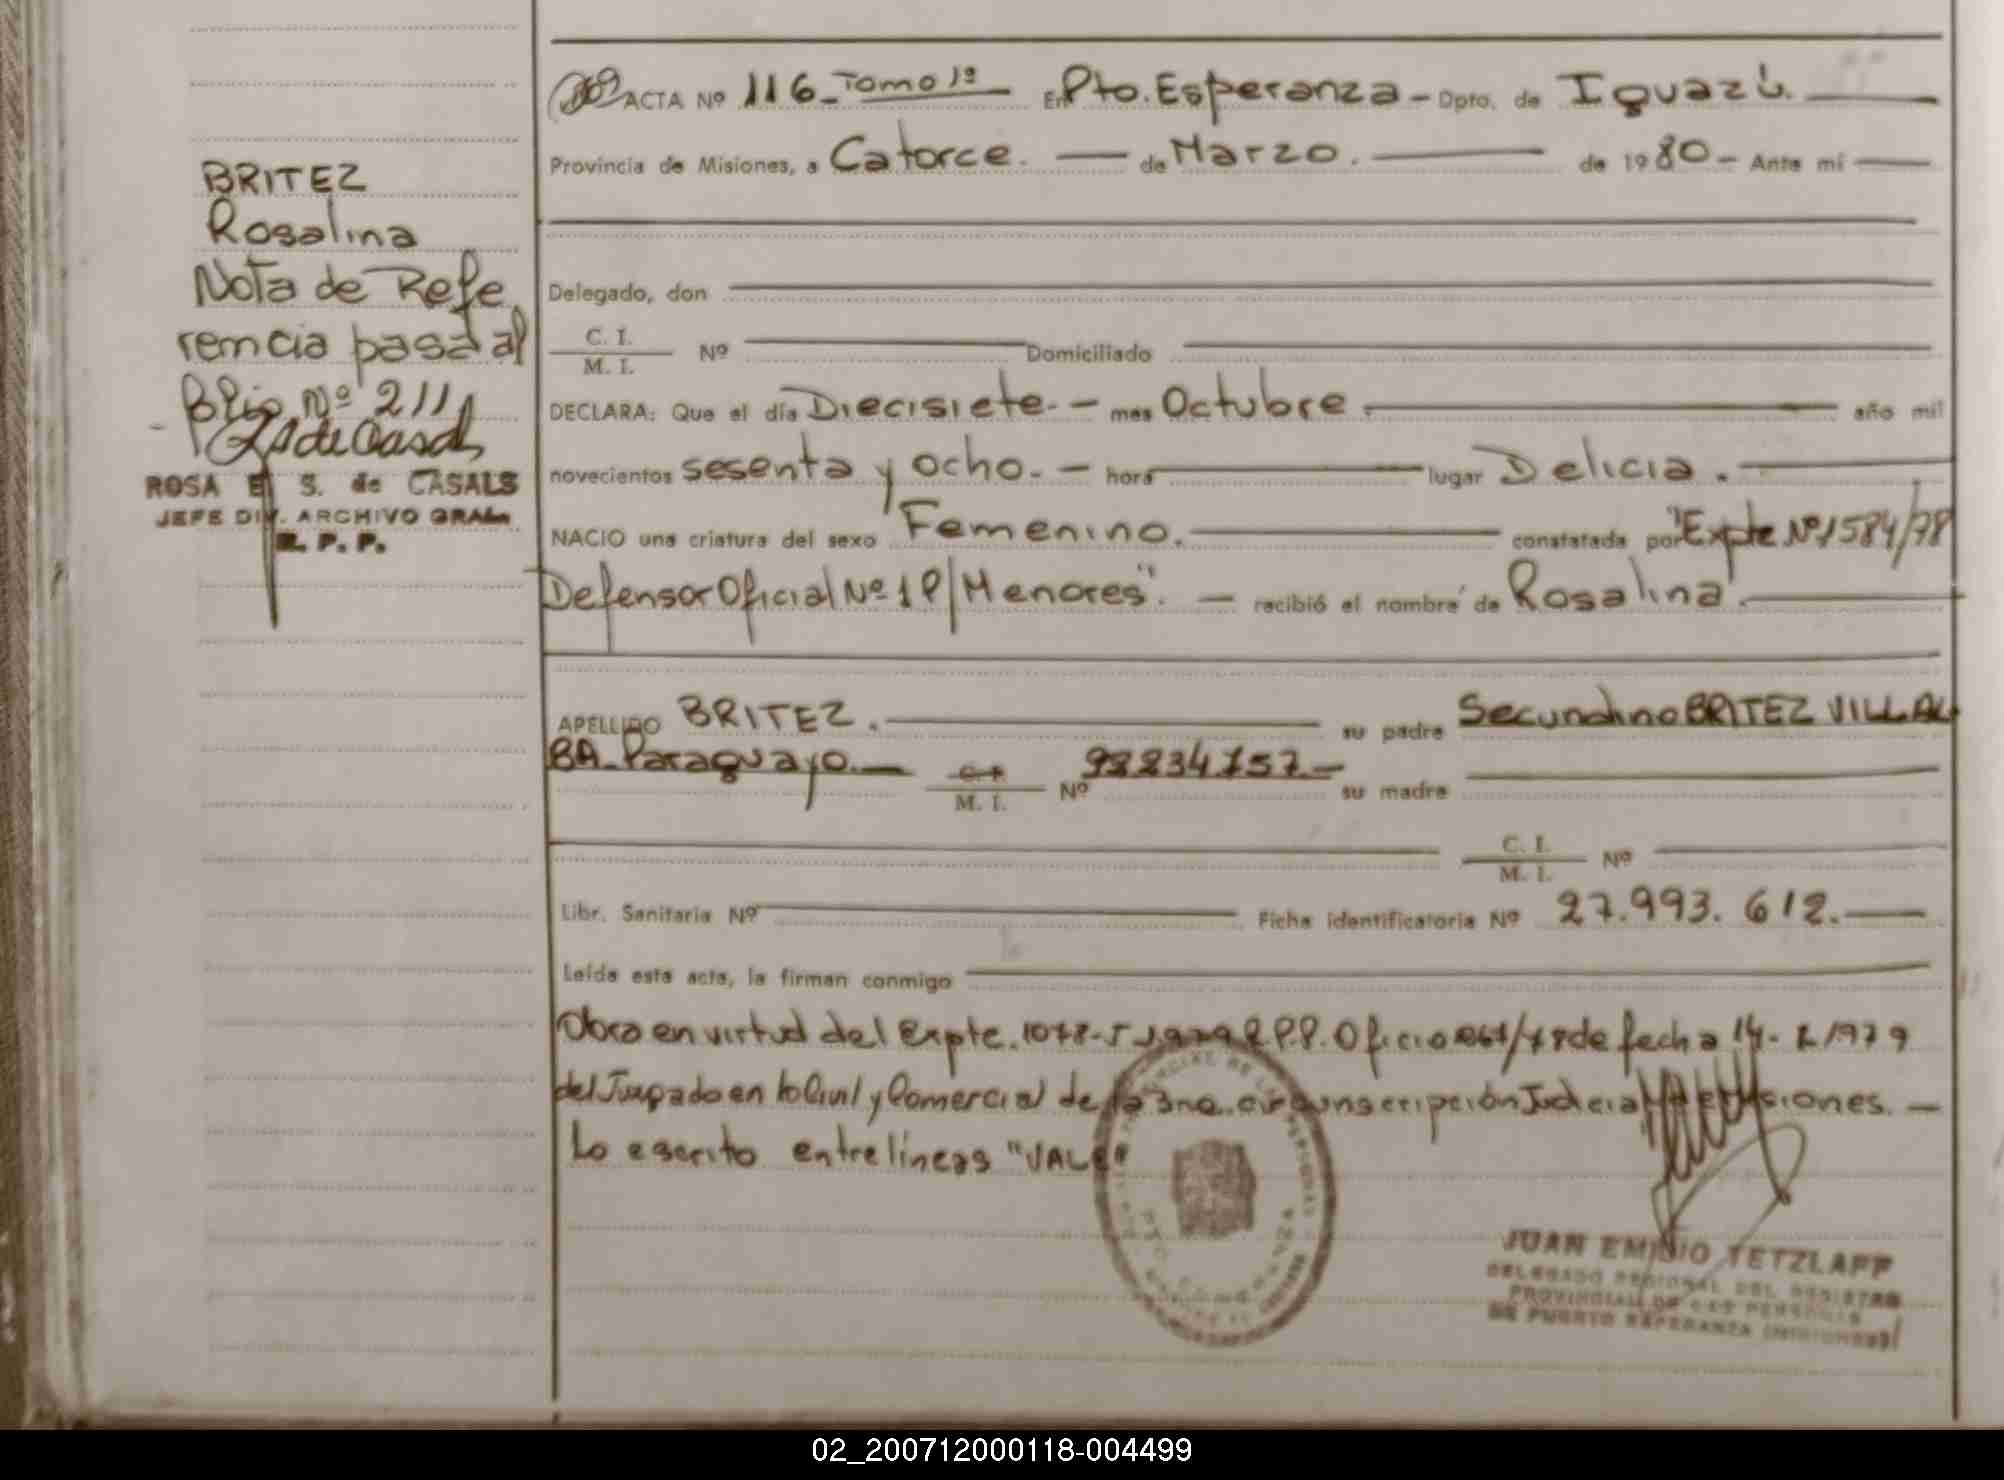 ACTA Nº 116 - Tomo 1º En Pto. Esperanza - Dpto. de Iguazú.
Provincia de Misiones, a Catorce. de Marzo. de 1980 - Ante mí
Delegado, don
C. I.
M. I. Nº Domiciliado
DECLARA: Que el día Diecisiete. - mes Octubre. año mil
novecientos sesenta y ocho. - hora lugar Delicia.
NACIO una criatura del sexo Femenino. constatada por "Expte Nº 1584/78
Defensor Oficial Nº 1 P/Menores". - recibió el nombre de Rosalina.
APELLIDO BRITEZ. su padre Secundino BRITEZ VILLAL
BA - Paraguayo. - C. I.
M. I. Nº 92234757 - su madre
C. I.
M. I. Nº
Libr. Sanitaria Nº Ficha identificatoria Nº 27.993.612.
Leída esta acta, la firman conmigo
Obra en virtud del Expte. R.P.P. Oficio de fecha 1979
del Juzgado en lo Civil y Comercial de la 3ra. circunscripción Judicial de Misiones. -
Lo escrito entre líneas "VALE"
JUAN EMILIO TETZLAFF
DELEGADO REGIONAL DEL REGISTRO
PROVINCIAL DE LAS PERSONAS
DE PUERTO ESPERANZA (MISIONES)
BRITEZ
Rosalina
Nota de Refe
rencia pasa al
Nº 211
ROSA E. S. de CASALS
JEFE DIV. ARCHIVO GRAL.
R. P. P.
02_200712000118-004499